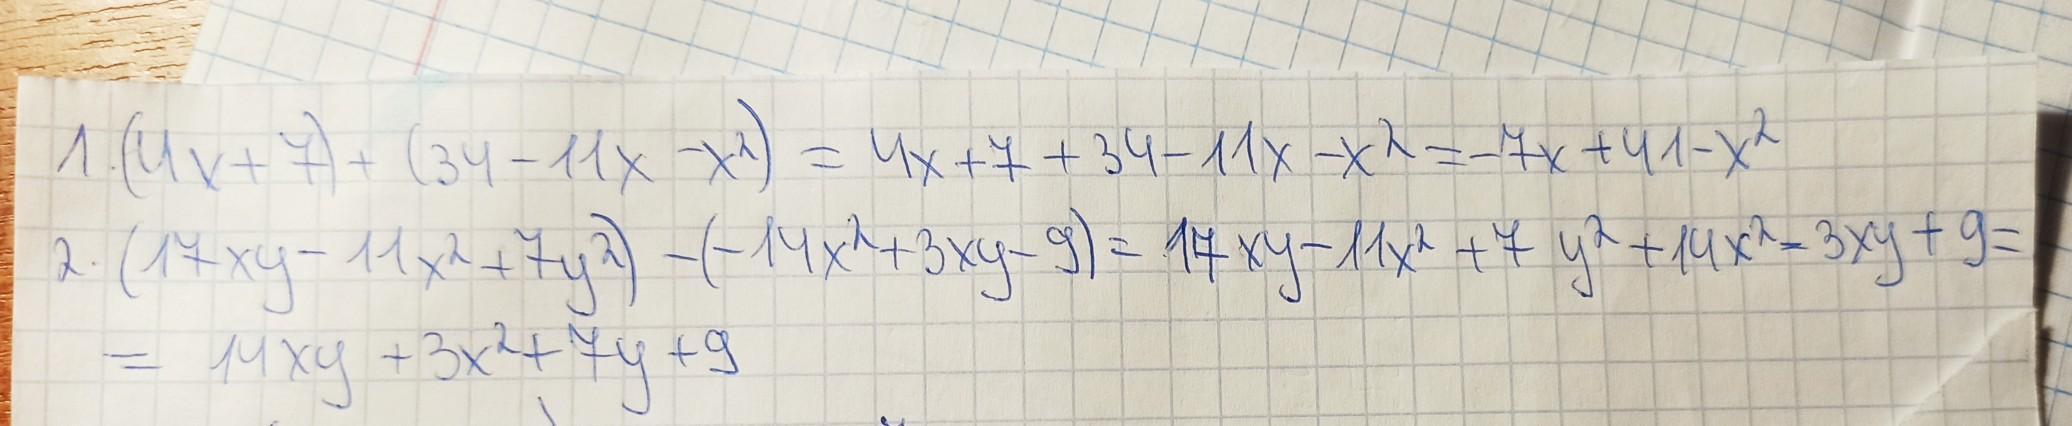 1. (4x+7) + (34-11x-x²) = 4x+7+34-11x-x² = -7x+41-x²
2. (17xy-11x²+7y²) -(-14x²+3xy-9) = 17xy-11x²+7y²+14x²-3xy+9=
= 14xy+3x²+7y+9